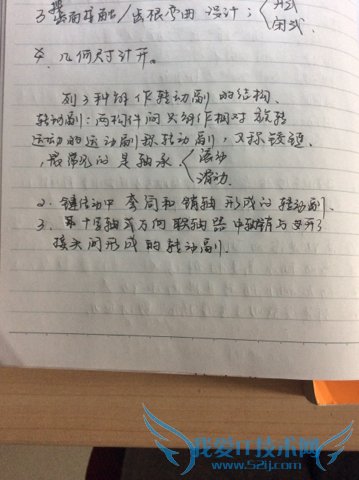 3. 齿面接触/齿根弯曲 设计：开式
闭式.
4. 几何尺寸计开。
列3种铜作转动副的结构.
转动副：两构件间只能作相对旋转
运动的运动副称转动副，又称铰链.
,最常见的是轴承.滚动
滑动.
2. 链传动中 套筒和销轴 形成的转动副.
3. 十字轴式万向联轴器中轴销与叉形
接头间形成的转动副.
我爱IT技术网
www.52ij.com